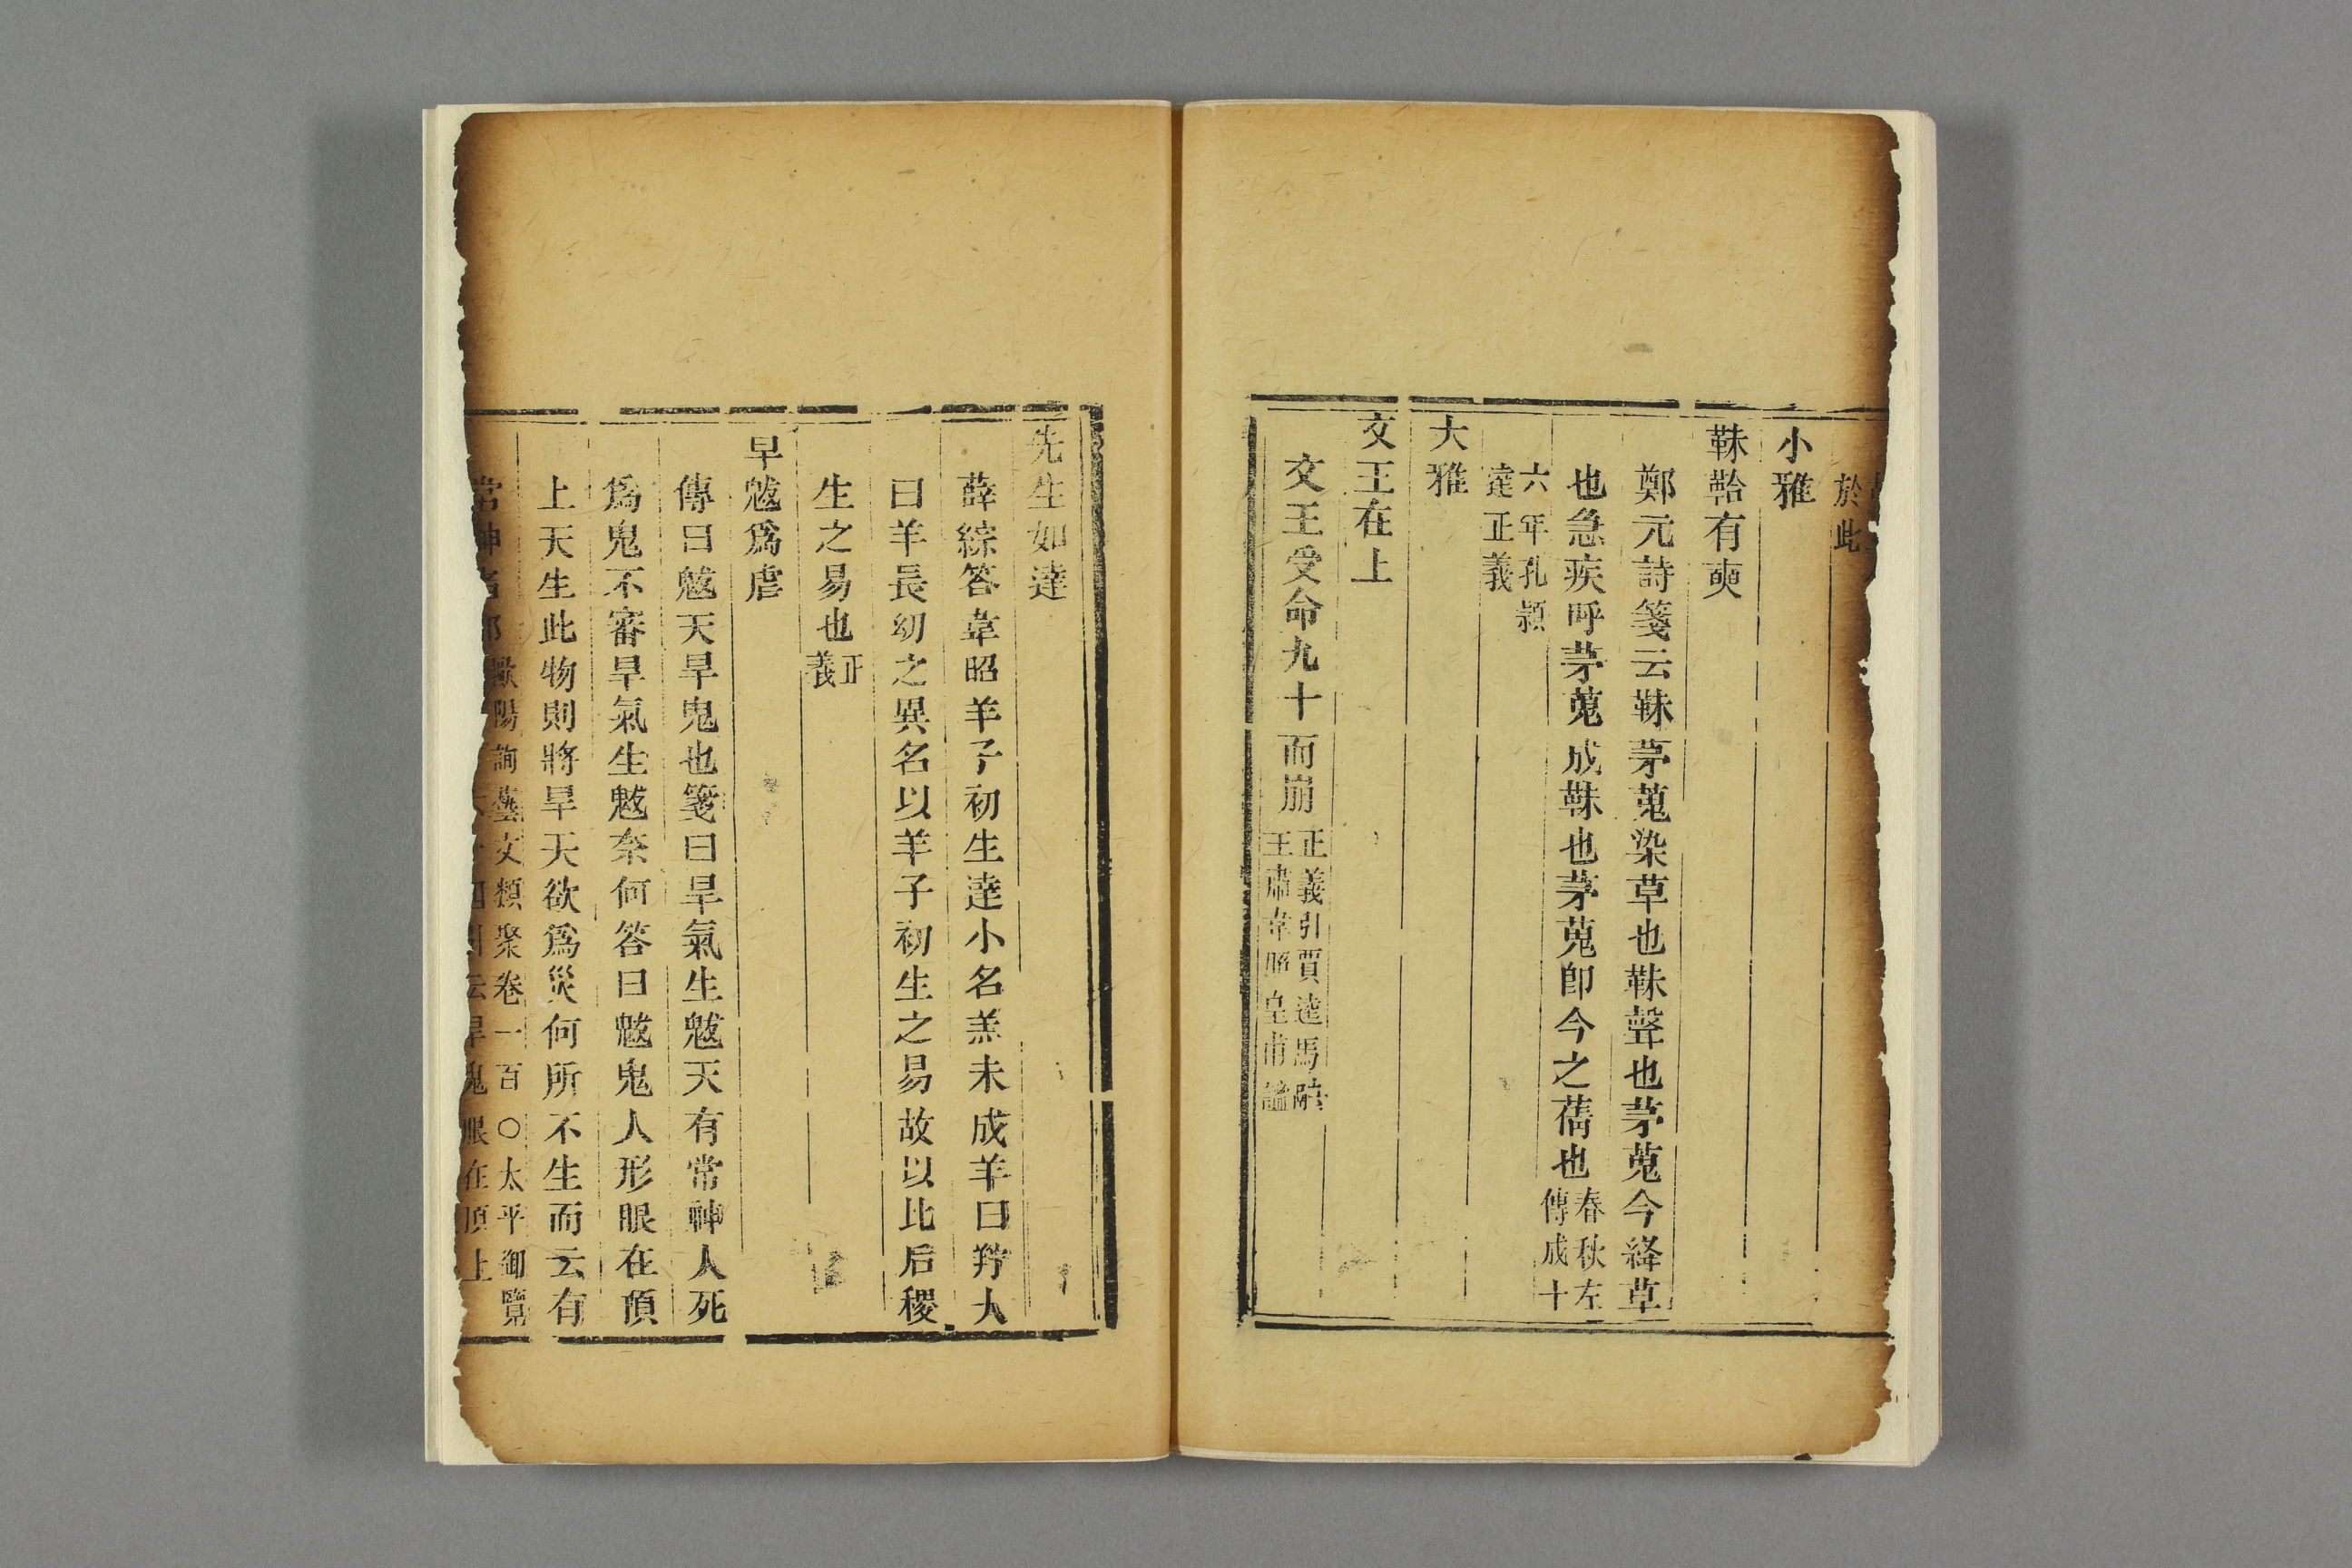 於此
小雅
韎韐有奭
鄭元詩箋云韎茅蒐染草也韎聲也茅蒐今絳草
也急疾呼茅蒐成韎也茅蒐卽今之蒨也春秋左傳成十
六年孔穎達正義
大雅
文王在上
文王受命九十而崩正義引賈逵馬融王肅韋昭皇甫謐
先生如達
薛綜答韋昭羊子初生達小名羔未成羊曰羜大
曰羊長幼之異名以羊子初生之易故以比后稷
生之易也正義
旱魃爲虐
傳曰魃天旱鬼也箋曰旱氣生魃天有常神人死
爲鬼不審旱氣生魃奈何答曰魃鬼人形眼在頂
上天生此物則將旱天欲爲災何所不生而云有
常神者耶歐陽詢藝文類聚卷一百〇太平御覽引云旱鬼眼在頂上